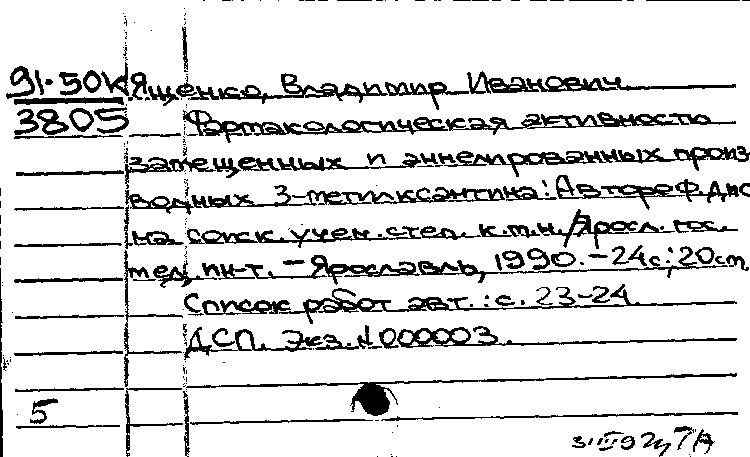 91-50К Ященко, Владимир Иванович
3805 Фармакологическая активность
замещенных и аннелированных произ
водных 3-метилксантина: Автореф. дис
на соиск. учен. степ. к.м.н. / Яросл. гос.
мед. ин-т. - Ярославль, 1990. - 24с.; 20см
Список работ авт.: с. 23-24
ДСП. Экз. N 000003.
5